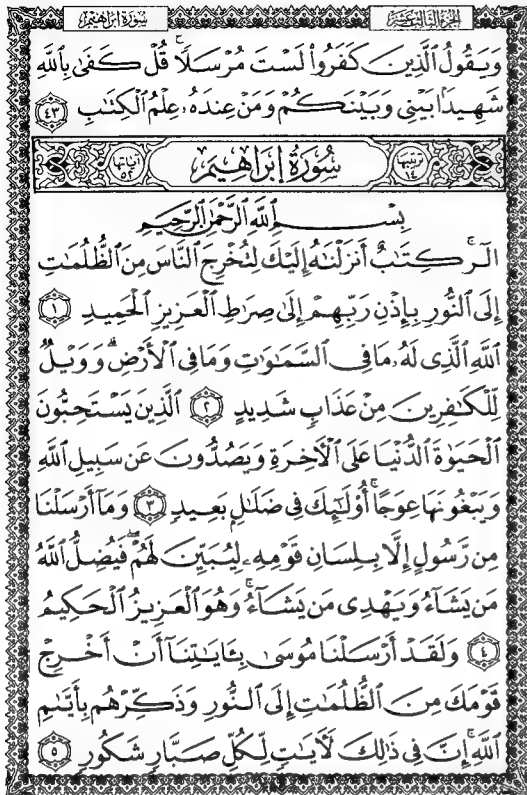 الجزء الثالث عشر
سورة إبراهيم
وَيَقُولُ ٱلَّذِينَ كَفَرُوا۟ لَسْتَ مُرْسَلًا ۚ قُلْ كَفَىٰ بِٱللَّهِ
شَهِيدًۢا بَيْنِى وَبَيْنَكُمْ وَمَنْ عِندَهُۥ عِلْمُ ٱلْكِتَٰبِ ٤٣
ترتيبها ١٤ سُورَةُ إِبْرَاهِيمَ آياتها ٥٢
بِسْمِ ٱللَّهِ ٱلرَّحْمَٰنِ ٱلرَّحِيمِ
الٓر ۚ كِتَٰبٌ أَنزَلْنَٰهُ إِلَيْكَ لِتُخْرِجَ ٱلنَّاسَ مِنَ ٱلظُّلُمَٰتِ
إِلَى ٱلنُّورِ بِإِذْنِ رَبِّهِمْ إِلَىٰ صِرَٰطِ ٱلْعَزِيزِ ٱلْحَمِيدِ ١
ٱللَّهِ ٱلَّذِى لَهُۥ مَا فِى ٱلسَّمَٰوَٰتِ وَمَا فِى ٱلْأَرْضِ ۗ وَوَيْلٌ
لِّلْكَٰفِرِينَ مِنْ عَذَابٍ شَدِيدٍ ٢ ٱلَّذِينَ يَسْتَحِبُّونَ
ٱلْحَيَوٰةَ ٱلدُّنْيَا عَلَى ٱلْءَاخِرَةِ وَيَصُدُّونَ عَن سَبِيلِ ٱللَّهِ
وَيَبْغُونَهَا عِوَجًا ۚ أُو۟لَٰٓئِكَ فِى ضَلَٰلٍۭ بَعِيدٍ ٣ وَمَآ أَرْسَلْنَا
مِن رَّسُولٍ إِلَّا بِلِسَانِ قَوْمِهِۦ لِيُبَيِّنَ لَهُمْ ۖ فَيُضِلُّ ٱللَّهُ
مَن يَشَآءُ وَيَهْدِى مَن يَشَآءُ ۚ وَهُوَ ٱلْعَزِيزُ ٱلْحَكِيمُ
٤ وَلَقَدْ أَرْسَلْنَا مُوسَىٰ بِـَٔايَٰتِنَآ أَنْ أَخْرِجْ
قَوْمَكَ مِنَ ٱلظُّلُمَٰتِ إِلَى ٱلنُّورِ وَذَكِّرْهُم بِأَيَّىٰمِ
ٱللَّهِ ۚ إِنَّ فِى ذَٰلِكَ لَءَايَٰتٍ لِّكُلِّ صَبَّارٍ شَكُورٍ ٥